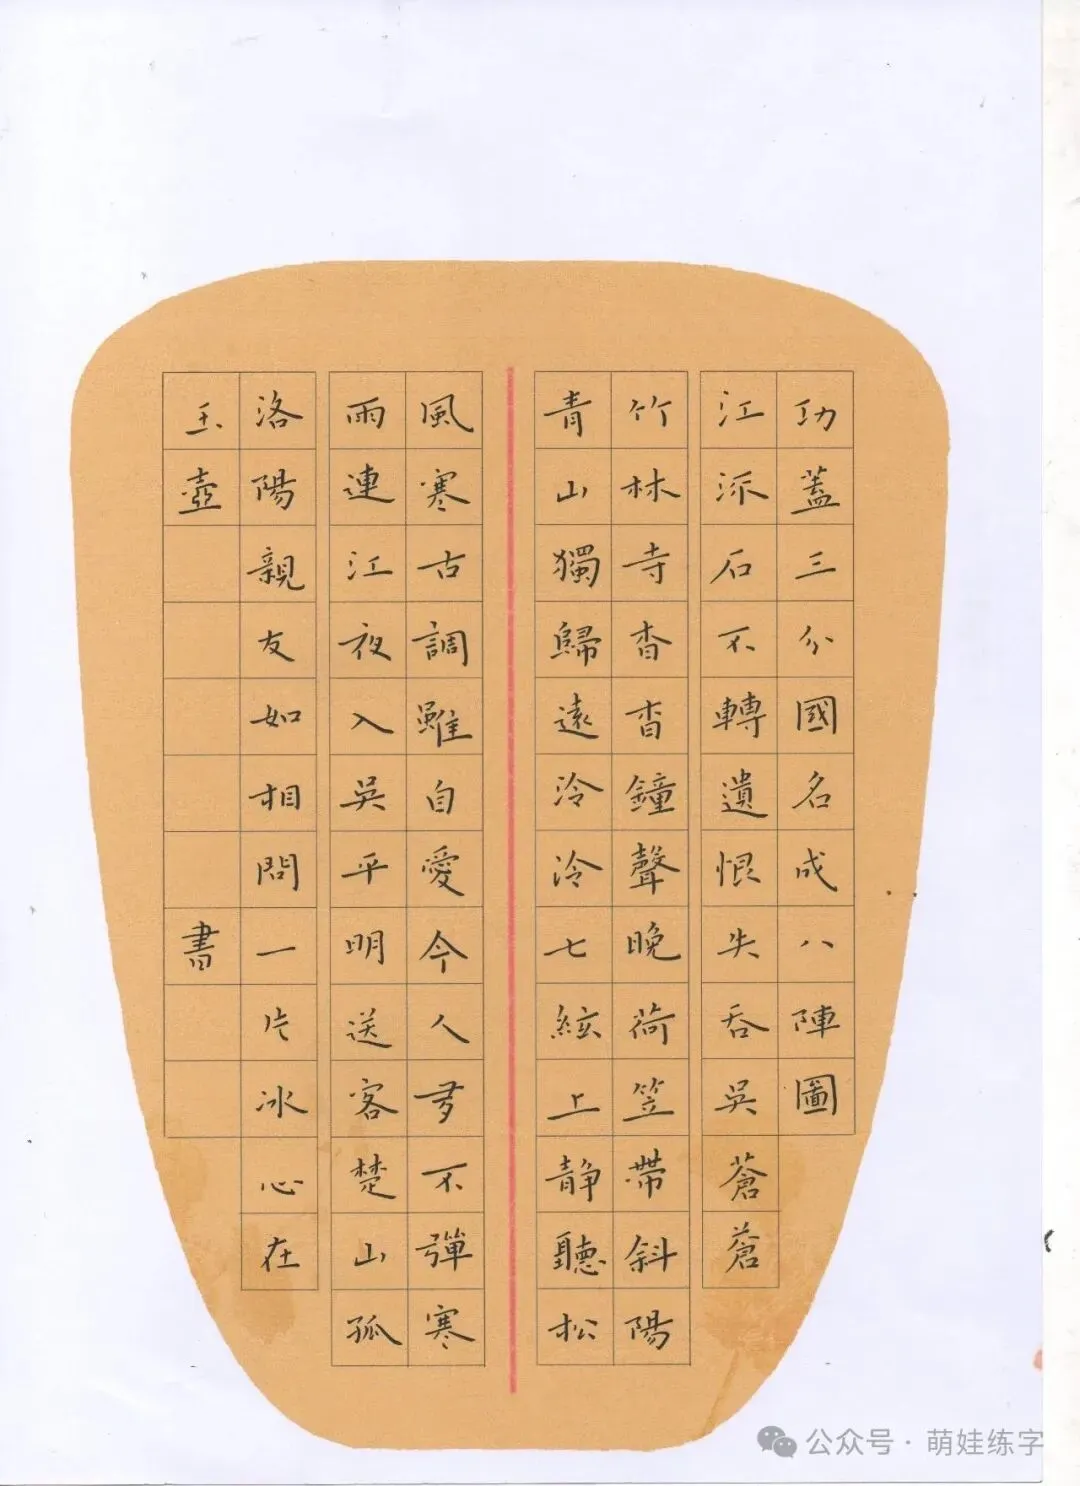 功蓋三分國名成八陣圖
江流石不轉遺恨失吞吳蒼蒼
竹林寺杳杳鐘聲晚荷笠帶斜陽
青山獨歸遠泠泠七絃上静聽松
風寒古調雖自愛今人多不彈寒
雨連江夜入吳平明送客楚山孤
洛陽親友如相問一片冰心在
玉壺 書
公众号 · 萌娃练字